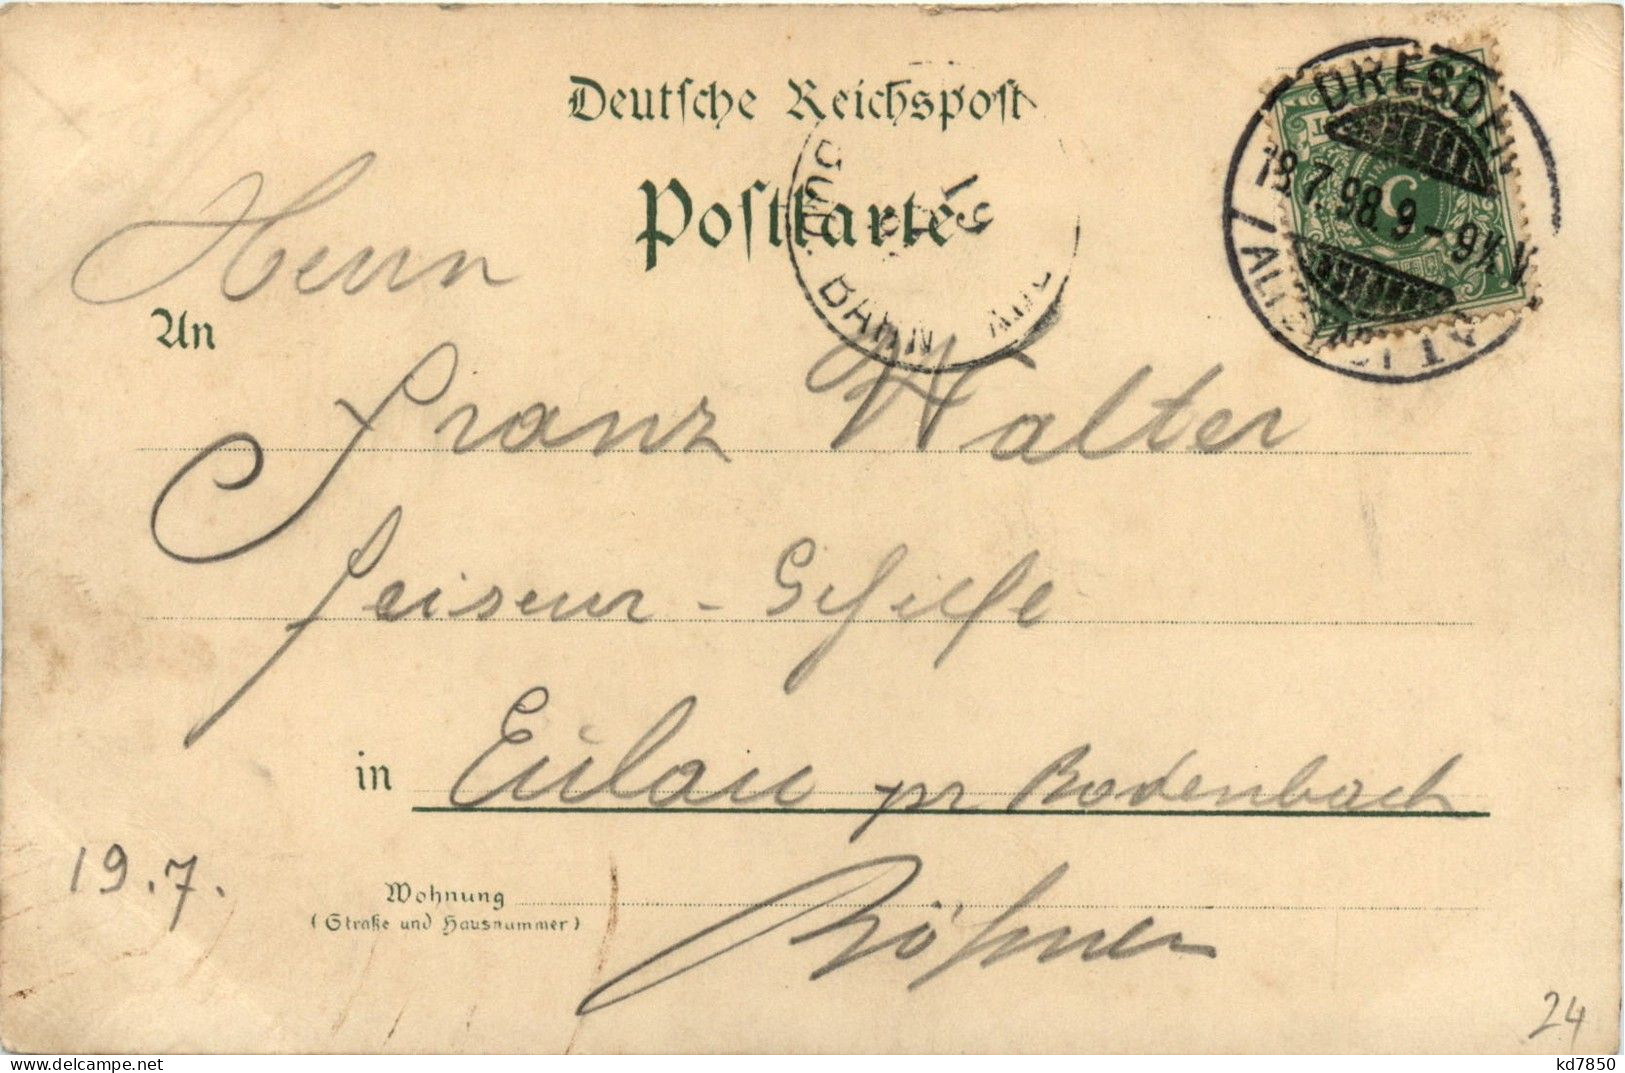 Deutsche Reichspost
Postkarte
DRESDEN
18.7.98.9-9½V.
ALTSTADT
BAHN
Herrn
An
Franz Walter
Friseur - Gehilfe
in Eulau pr Bodenbach
Böhmen
19.7.
Wohnung
(Straße und Hausnummer)
24
kd7850